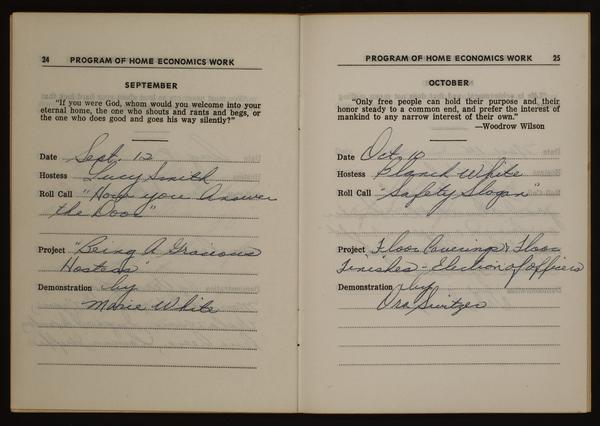 24 PROGRAM OF HOME ECONOMICS WORK
SEPTEMBER
"If you were God, whom would you welcome into your
eternal home, the one who shouts and rants and begs, or
the one who does good and goes his way silently?"
Date Sept. 12
Hostess Lucy Smith
Roll Call "How you Answer
the Door"
Project "Being A Gracious
Hostess"
Demonstration by
Marie White
PROGRAM OF HOME ECONOMICS WORK 25
OCTOBER
"Only free people can hold their purpose and their
honor steady to a common end, and prefer the interest of
mankind to any narrow interest of their own."
—Woodrow Wilson
Date Oct. 10
Hostess Blanch White
Roll Call "Safety Slogan"
Project Floor Coverings & Floor
Finishes - Election of officers
Demonstration by
Ora Switzer